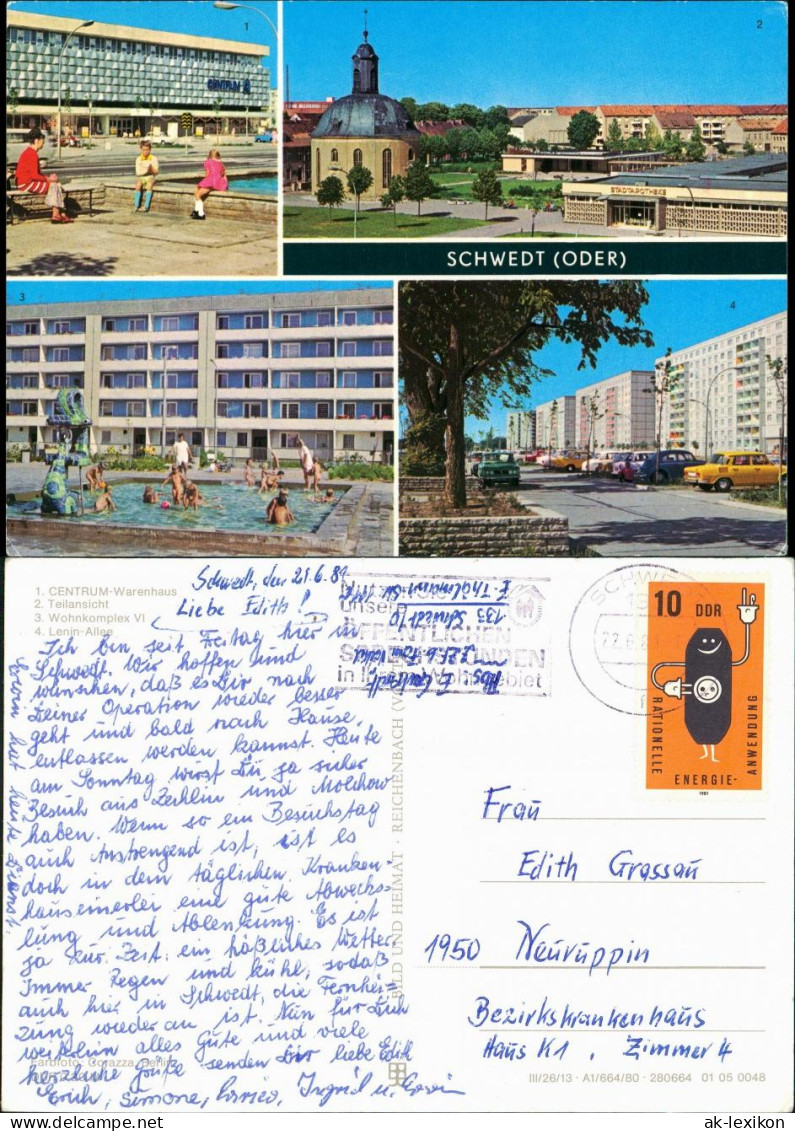 1
CENTRUM
2
STADTAPOTHEKE
SCHWEDT (ODER)
3
4
1. CENTRUM-Warenhaus
2. Teilansicht
3. Wohnkomplex VI
4. Lenin-Allee
Schwedt, den 21.6.81
Liebe Edith!
Ich bin seit Freitag hier in
Schwedt. Wir hoffen und
wünschen, daß es Dir nach
Deiner Operation wieder besser
geht und bald nach Hause,
entlassen werden kannst. Heute
am Sonntag wirst Du ja sicher
Besuch aus Zechlin und Molchow
haben. Wenn so ein Besuchstag
auch Anstrengend ist, ist es
doch in dem täglichen Kranken-
hauseinerlei eine gute Abwechs-
lung und Ablenkung. Es ist
ja zur Zeit ein häßliches Wetter.
Immer Regen und kühl, sodaß
auch hier in Schwedt, die Fernhei-
zung wieder an ist. Nun für Dich
weiterhin alles Gute und viele
herzliche Grüße senden Dir liebe Edith
Erich, Simone, Ingrid u. Erwin
Erwin hat heute Dienst.
Abs.
133 Schwedt/O
E. Thälmann-Str.
unsere
ÖFFENTLICHEN
in Wohngebiet
SCHWE
22.6.8
10 DDR
RATIONELLE ENERGIE-ANWENDUNG
1981
Frau
Edith Grassau
1950 Neuruppin
Bezirkskrankenhaus
Haus K1, Zimmer 4
BILD UND HEIMAT · REICHENBACH (V
Farbfoto: Corazza, Berlin
III/26/13 · A1/664/80 · 280664 01 05 0048
ak-lexikon.com